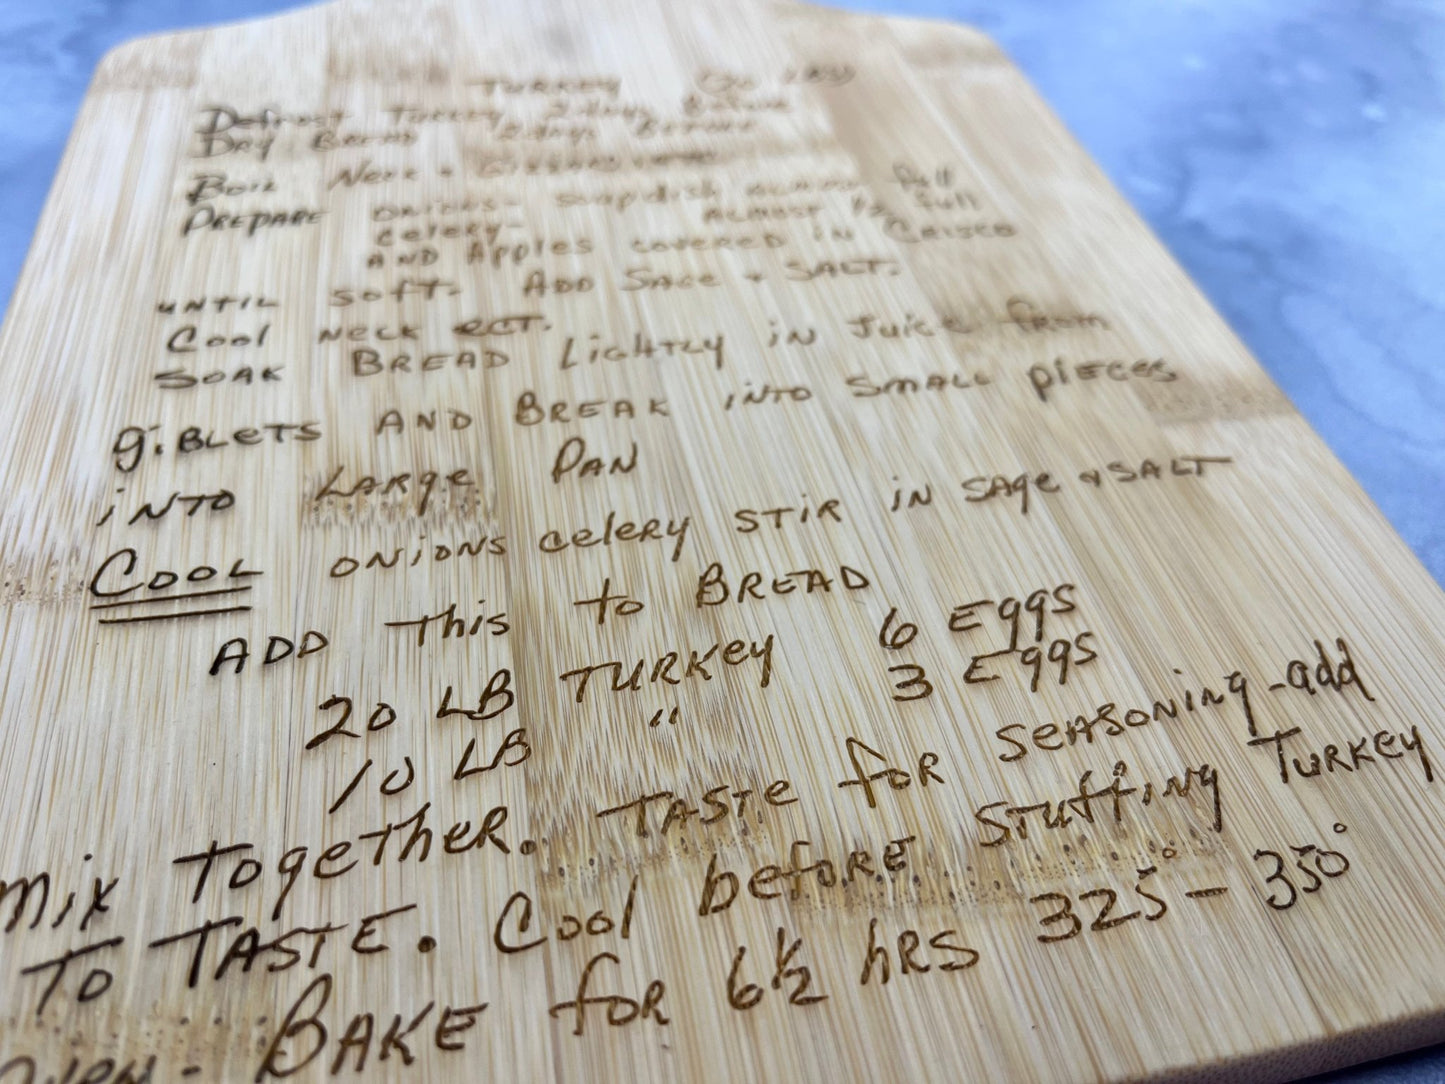 TURKEY (20 LBS)
Defrost Turkey 2 days Before
DRY BREAD 2 days BEFORE
BOIL NECK + GIZZARD
PREPARE ONIONS - soup dish almost full
celery - ALMOST 1/2 full
AND Apples covered in CRISCO
UNTIL soft. ADD SAGE + SALT.
Cool NECK ECT.
SOAK BREAD LightLy iN Juice from
giBLETS AND BREAK iNTO SMALL pIECES
iNTO LARge PAN
COOL ONIONS celery STIR iN SAge + SALT
ADD This to BREAD
20 LB TURKey 6 Eggs
10 LB " 3 Eggs
Mix TogetheR. TASTe foR seASoNiNg - add
To TASTE. Cool befoRE STuffiNg TuRKey
Oven. BAKE foR 6 1/2 hRS 325° - 350°